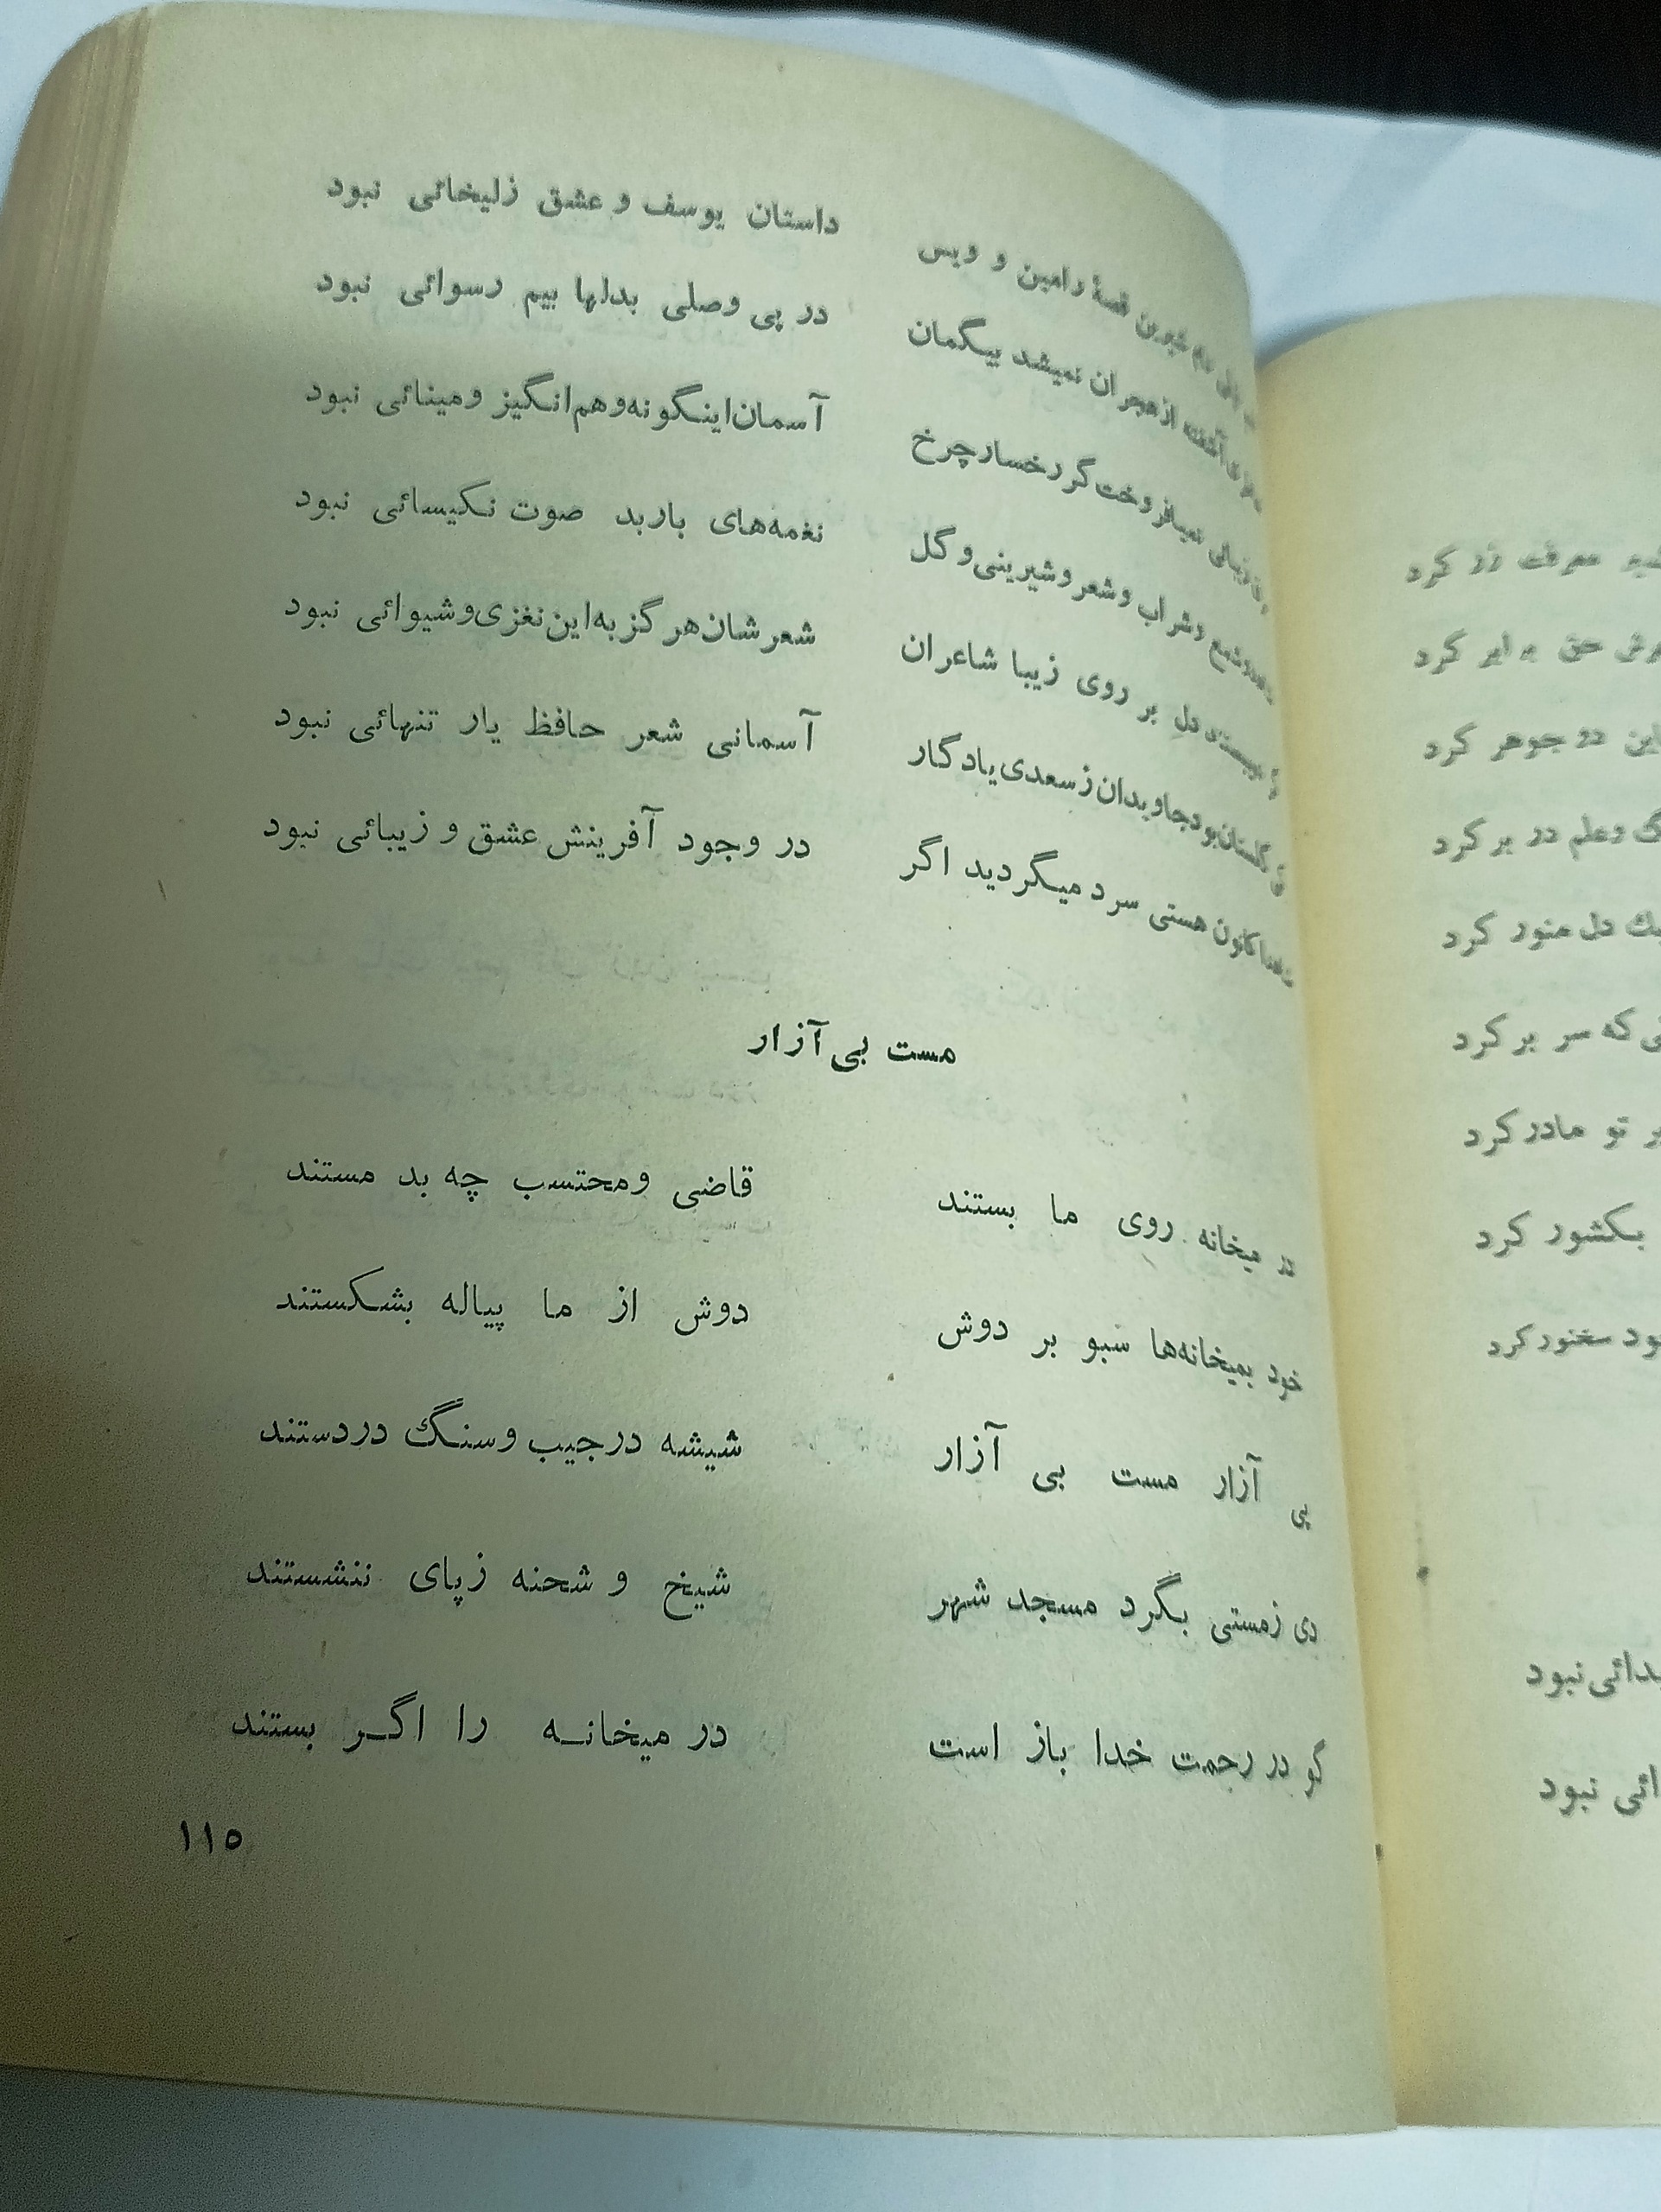 شیرین قصهٔ رامین و ویس داستان یوسف و عشق زلیخائی نبود
آشفته از هجران نمیشد بیگمان در پی وصلی بدلها بیم رسوائی نبود
نمیافروخت گر رخسار چرخ آسمان اینگونه وهم انگیز و مینائی نبود
شمع و شراب و شعر و شیرینی و گل نغمه‌های باربد صوت نکیسائی نبود
دل بر روی زیبا شاعران شعرشان هرگز به این نغزی و شیوائی نبود
گلستان بود جاویدان ز سعدی یادگار آسمانی شعر حافظ یار تنهائی نبود
کانون هستی سرد میگردید اگر در وجود آفرینش عشق و زیبائی نبود
مست بی آزار
در میخانه روی ما بستند قاضی و محتسب چه بد مستند
خود بمیخانه‌ها سبو بر دوش دوش از ما پیاله بشکستند
پی آزار مست بی آزار شیشه در جیب و سنگ در دستند
دی زمستی بگرد مسجد شهر شیخ و شحنه زپای ننشستند
گو در رحمت خدا باز است در میخانه را اگر بستند
۱۱۵
معرفت زر کرد
حق برابر کرد
این دو جوهر کرد
وعلم در بر کرد
دل منور کرد
که سر بر کرد
تو مادر کرد
بکشور کرد
سخنور کرد
نبود
نبود